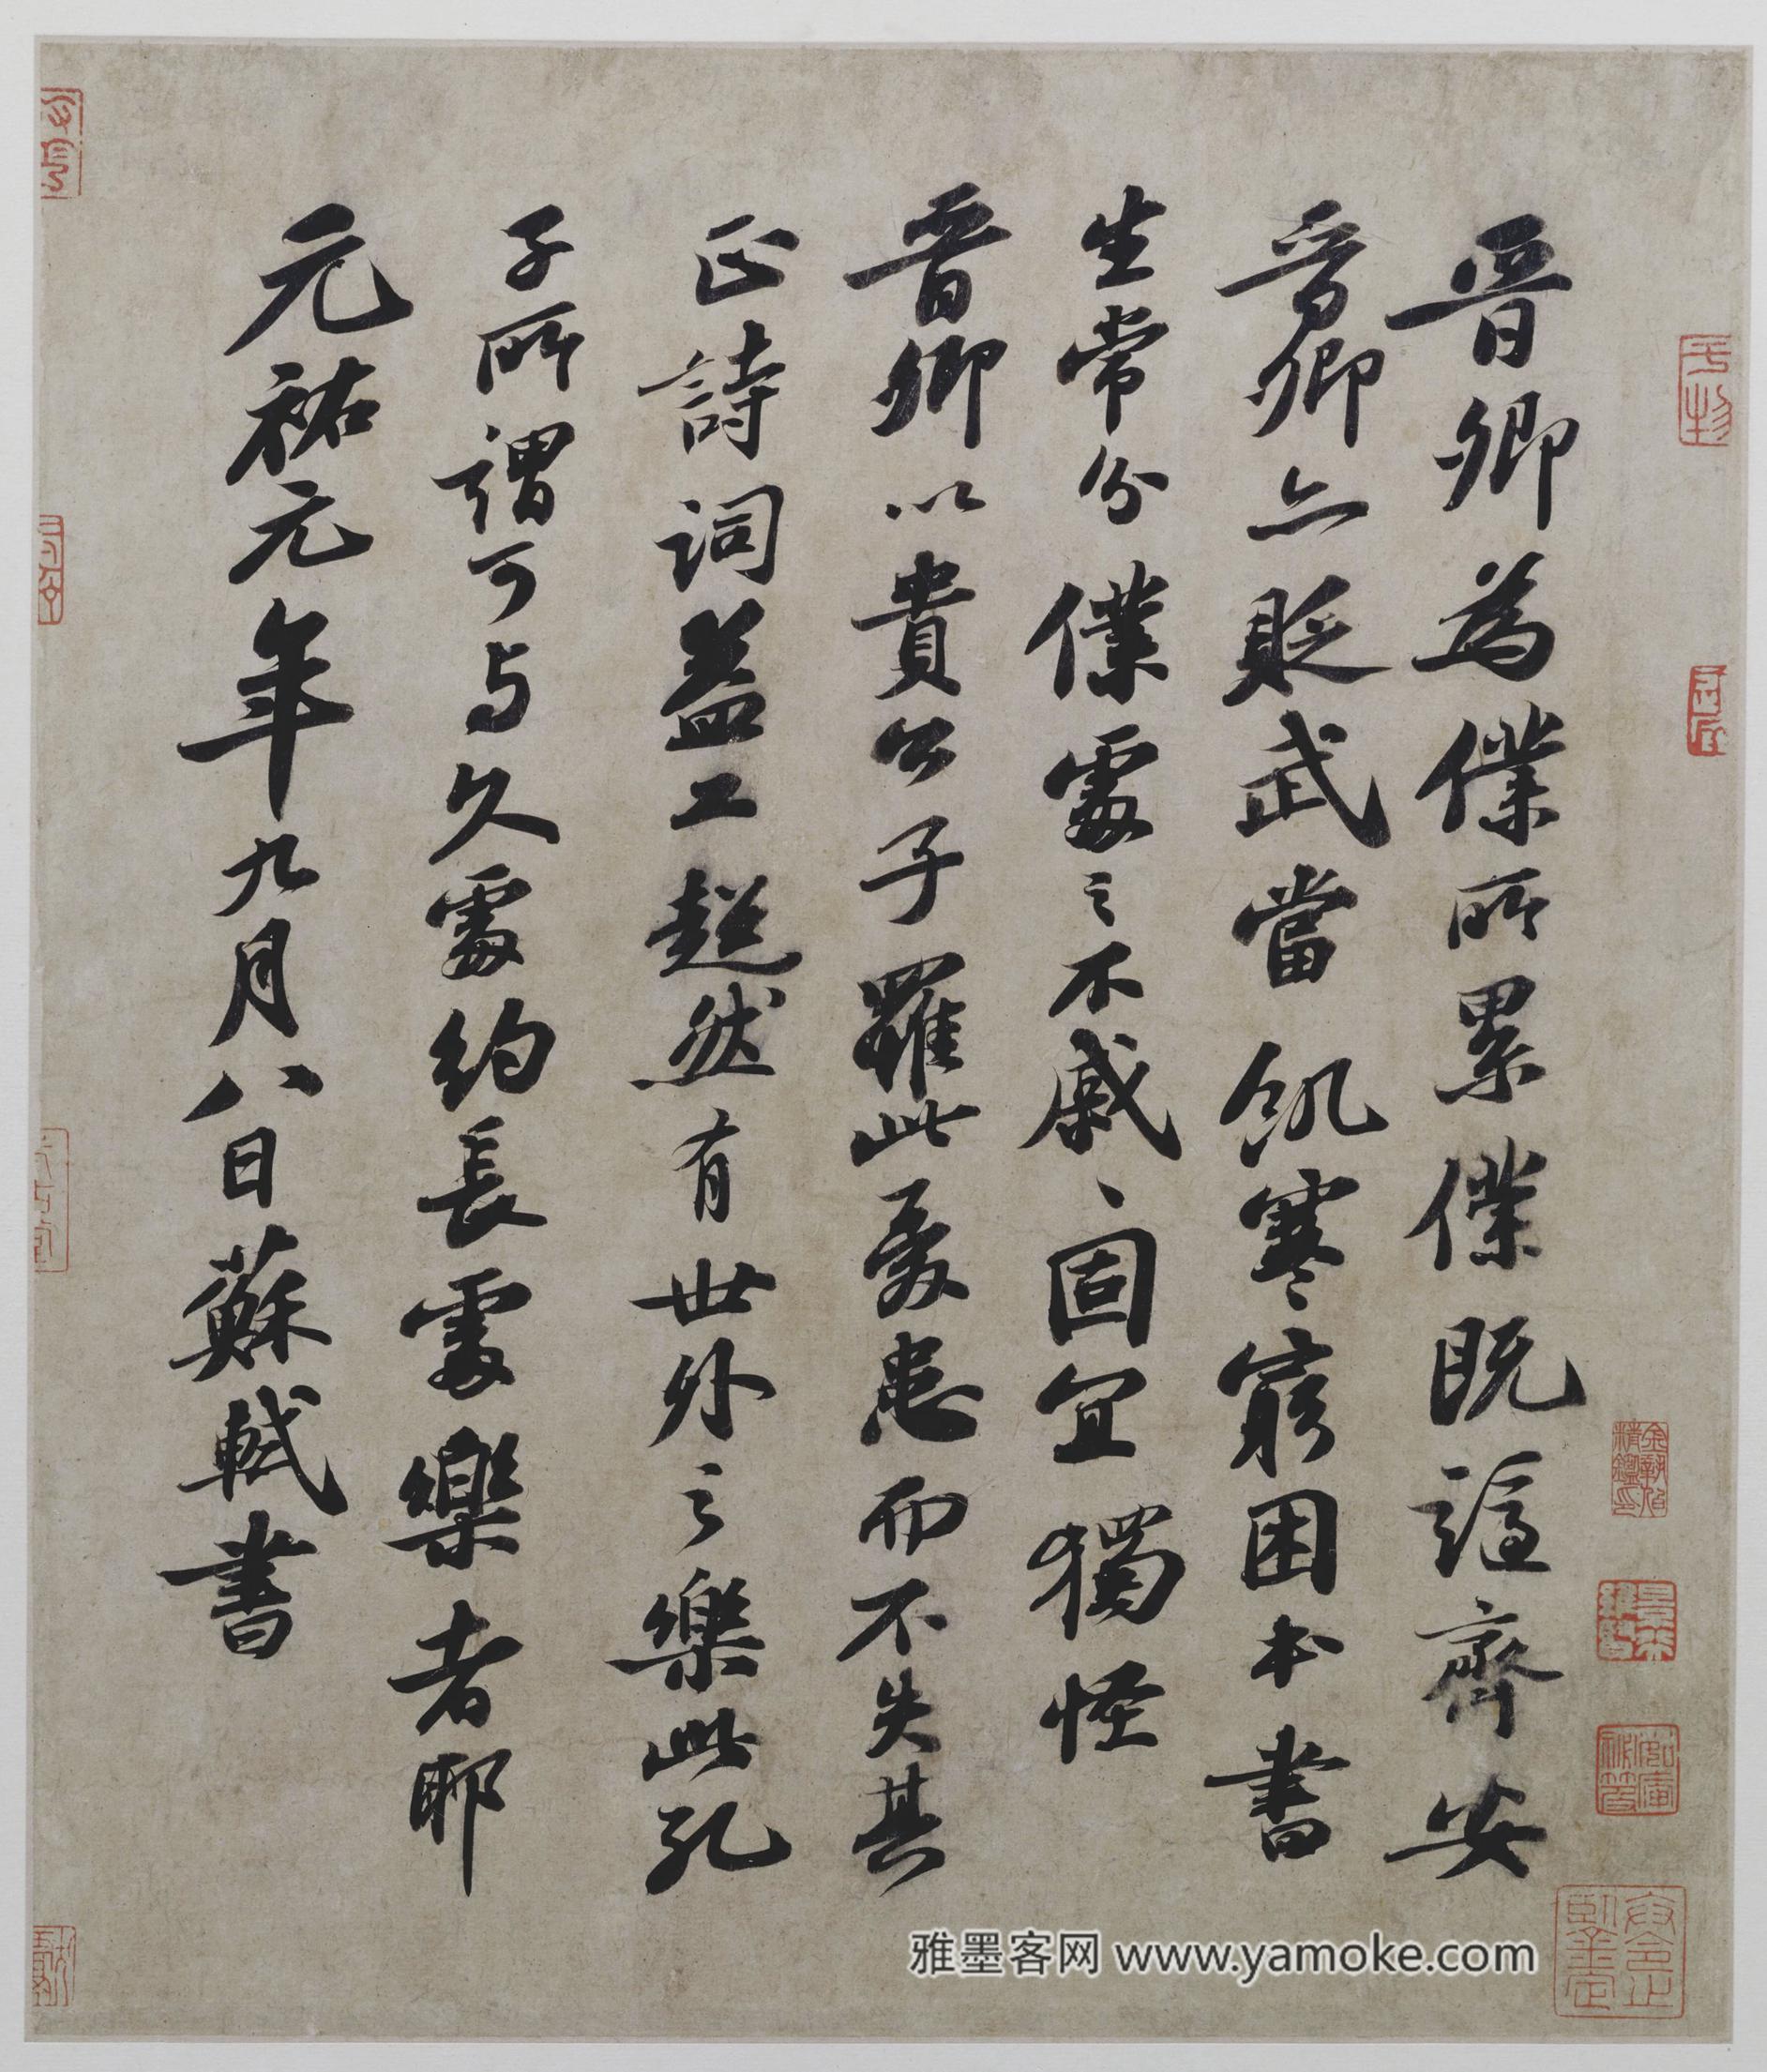 晉卿為僕所累僕既謫齊安
晉卿亦貶武當飢寒窮困本書
生常分僕處之不戚戚固宜獨怪
晉卿以貴公子罹此憂患而不失其
正詩詞益工超然有世外之樂此孔
子所謂可与久處約長處樂者耶
元祐元年九月八日蘇軾書
雅墨客网 www.yamoke.com